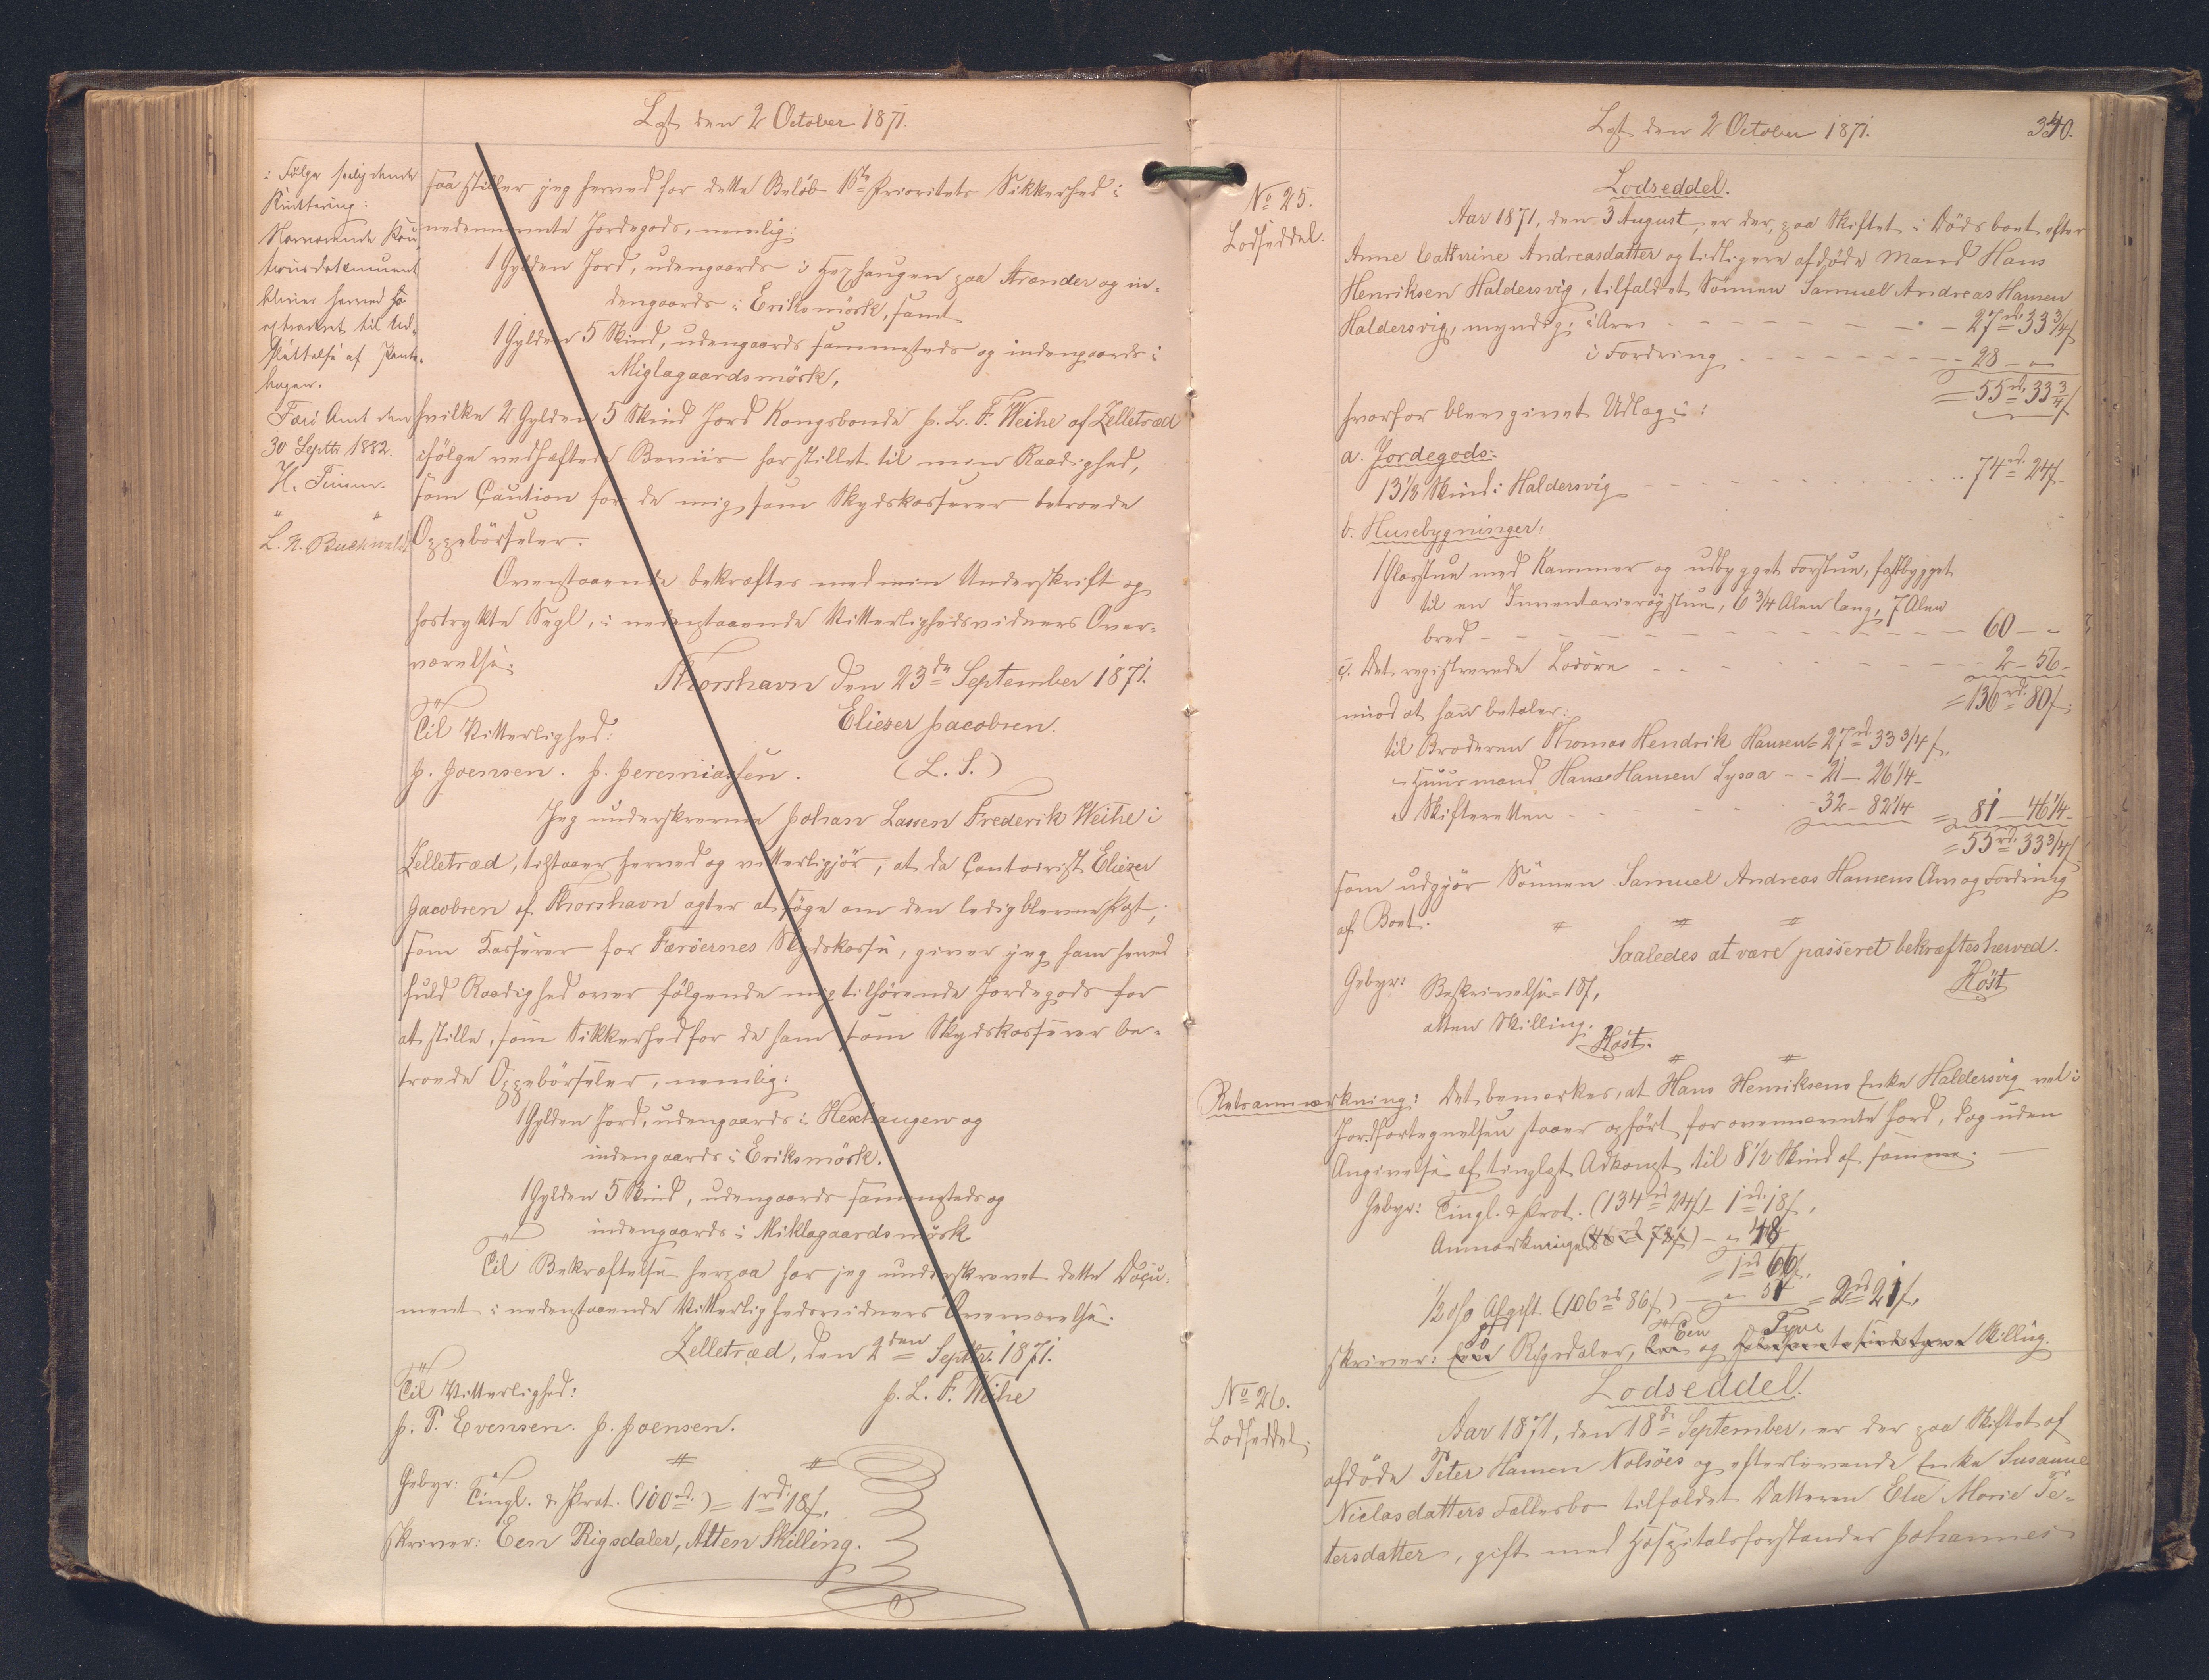 Læst den 2 October 1871.
i Følge
Kvittering:
Nærværende Kau-
tionsdokument
bliver herved
til Ud-
slettelse af Pante-
bogen.
Færø Amt den
30 Septbr 1882.
H. Finsen.
" "
L. N. Buchwaldt
saa stiller jeg herved for dette Beløb 1ste Prioritets Sikkerhed i
nedennævnte Jordegods, nemlig:
1 Gylden Jord, udengaards i Hexhaugen paa Strander og in-
dengaards i Eriksmörk, samt
1 Gylden 5 Skind, udengaards sammesteds og indengaards i
Miglagaardsmörk,
hvilke 2 Gylden 5 Skind Jord Kongsbonde J. L. F. Weihe af Zelletræd
ifølge vedhæftede Beviis har stillet til min Raadighed,
som Caution for de mig som Skydskasserer betroede
Oppebörseler.
Ovenstaaende bekræftes med min Underskrift og
hostrykte Segl, i nedenstaaende Vitterlighedsvidners Over-
værelse.
Thorshavn den 23de September 1871.
Eliezer Jacobsen.
Til Vitterlighed:
J. Joensen. J. Jeremiassen. (L. S.)
Jeg underskrevne Johan Lassen Frederik Weihe i
Zelletræd, tilstaaer herved og vitterligjör, at da Contoirist Eliezer
Jacobsen af Thorshavn agter at søge om den ledigblevne Post,
som Kasserer for Færöernes Skydskasse, giver jeg ham herved
fuld Raadighed over følgende mig tilhörende Jordegods for
at stille, som Sikkerhed for de ham som Skydskasserer be-
troede Oppebörseler, nemlig:
1 Gylden Jord, udengaards i Hexhaugen og
indengaards i Eriksmörk.
1 Gylden 5 Skind, udengaards sammesteds og
indengaards i Miklagaardsmörk
Til Bekræftelse herpaa har jeg underskrevet dette Docu-
ment i nedenstaaende Vitterlighedsvidners Overværelse.
Zelletræd, den 2den Septbr. 1871.
Til Vitterlighed: J. L. F. Weihe
J. P. Evensen. J. Joensen.
Gebyr: Tingl. & Prot. (100rd.) = 1rd. 18ß,
skriver: Een Rigsdaler, Atten Skilling.
Læst den 2 October 1871. 340.
No 25.
Lodseddel.
Lodseddel.
Aar 1871, den 3 August, er der, paa Skiftet i Dödsboet efter
Anne Cathrine Andreasdatter og tidligere afdöde Mand Hans
Henriksen Haldersvig, tilfaldet Sönnen Samuel Andreas Hansen
Haldersvig, myndig, i Arv - - - 27rd. 33 3/4ß
i Fordring - - - 28 - "
= 55rd. 33 3/4ß
hvorfor blev givet Udlæg i:
a. Jordegods:
13 1/3 Skind i Haldersvig - - - 74rd. 24ß
b. Husebygninger.
1 Glasstue med Kammer og udbygget Forstue, fastbygget
til en Inventarierögstue, 6 3/4 Alen lang, 7 Alen
bred - - - 60 - "
c. Det registrerede Lösöre - - - 2 - 56 -
= 136rd. 80ß;
imod at han betaler:
til Broderen Thomas Hendrik Hansen = 27rd. 33 3/4ß,
- Huusmand Hans Hansen Lysaa - - 21 - 26 1/4 -
- Skifteretten - - 32 - 82 1/4 = 81 - 46 1/4 -
= 55rd. 33 3/4ß
som udgjör Sönnen Samuel Andreas Hansens Arv og Fordring
af Boet.
Saaledes at være passeret bekræftes herved.
Höst
Gebyr: Beskrivelse = 18ß,
atten Skilling.
Höst.
Retsanmærkning: Det bemærkes, at Hans Henriksens Enke Haldersvig vel i
Jordfortegnelsen staaer opfört for ovennævnte Jord, dog uden
Angivelse af tinglæst Adkomst til 8 1/2 Skind af samme. -
Gebyr: Tingl. & Prot. (134rd 24ß) - 1rd. 18ß,
Anmærkningen (46rd 78ß) - " 48
= 1rd 66ß,
1/2 o/o Afgift (106rd 86ß) - " 51 = 2rd 21ß,
skriver: To Rigsdaler, og Een Tyve Skilling.
No 26.
Lodseddel.
Lodseddel.
Aar 1871, den 18de September, er der paa Skiftet af
afdöde Peter Hansen Nolsöes og efterlevende Enke Susanne
Niclasdatters Fællesbo tilfaldet Datteren Else Marie Pe-
tersdatter, gift med Hospitalsforstander Johannes